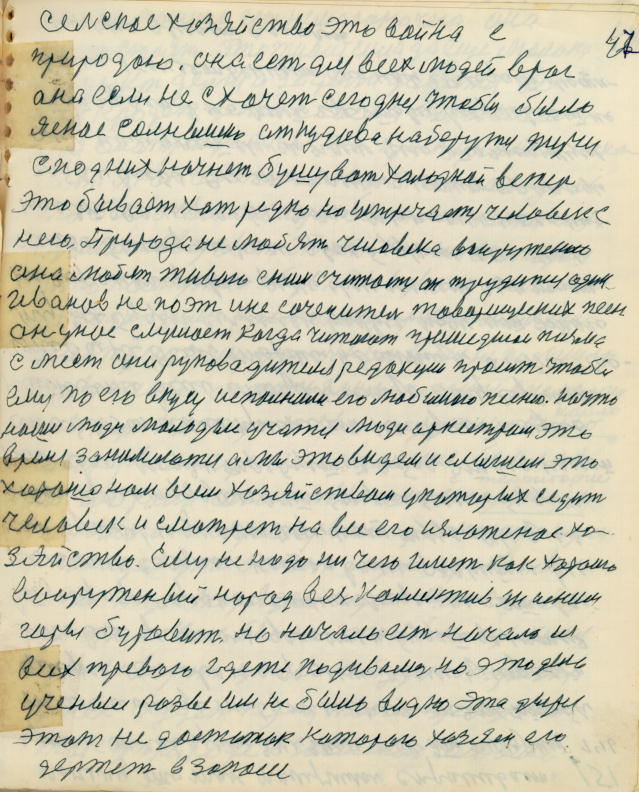 селское хозяйство это война с
природою. она ест для всех людей враг
она если не схочет сегодня чтобы было
ясное солнышко откудова наберутся тучи
с под них начнет бушуват холодной ветер
это бывает хот редко но встречается человек с
нею. Природа не любят человека вооруженого
она любят живого с ним считается он трудится
Иванов не поэт и не сочинител товарищеских песен
он умное слушает когда читают пришедшии писма
с мест они руководителя редакции просит чтобы
ему по его вкусу исполнили его любимою песню. на что
наши люди молодые учатся люди аркестром это
время заниматся а мы это видем и слышем это
хорошо нам всем хозяйствам у которых сидит
человек и смотрет на все его изложеное хо-
зяйство. Ему не надо ни чего имет как хорошо
вооруженый народ вез колектив
горы буровит. но начало ест начало из
всех тревого на это ден
ученым разве им не было видно эта дыра
этот не достаток которого хозяен его
держет в запаси